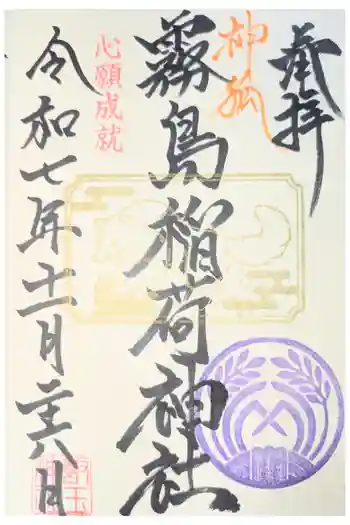 奉拝
神狐
霧島稲荷神社
心願成就
令和七年十一月二十八日